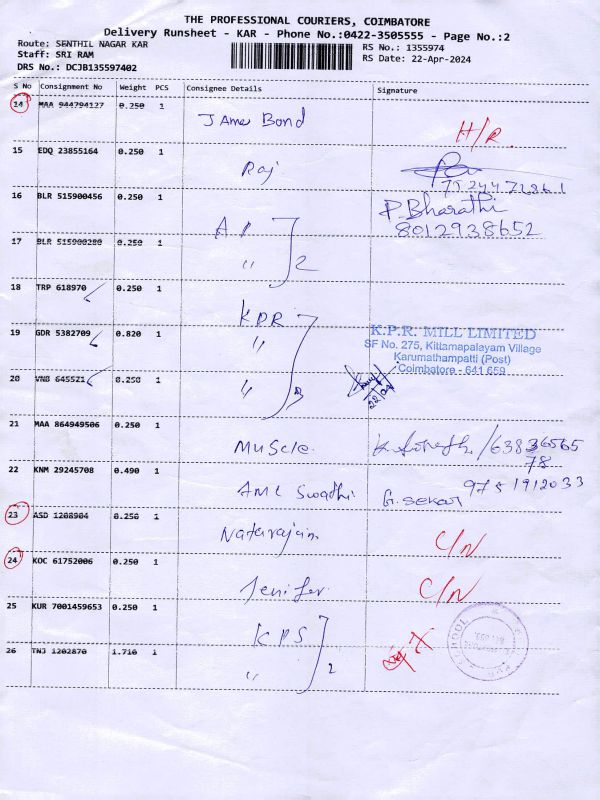 THE PROFESSIONAL COURIERS, COIMBATORE
Delivery Runsheet - KAR - Phone No.:0422-3505555 - Page No.:2
Route: SENTHIL NAGAR KAR
Staff: SRI RAM
DRS No.: DCJB135597402
RS No.: 1355974
RS Date: 22-Apr-2024
S No Consignment No Weight PCS Consignee Details Signature
14 MAA 944794127 0.250 1 James Bond H/R
15 EDQ 23855164 0.250 1 Raj
16 BLR 515900456 0.250 1 A.P. P.Bharathi
8012938652
17 BLR 515900280 0.250 1 " 2
18 TRP 618970 0.250 1 KPR
19 GDR 5382709 0.820 1 "
K.P.R. MILL LIMITED
SF No. 275, Kittamapalayam Village
Karumathampatti (Post)
Coimbatore - 641 659
20 VNB 645521 0.250 1 " 3
22/04
21 MAA 864949506 0.250 1 Muscle
22 KNM 29245708 0.490 1 AML Swadhi G.sekar 9751912033
23 ASD 1208904 0.250 1 Natarajan C/N
24 KOC 61752006 0.250 1 Jenifer C/N
25 KUR 7001459653 0.250 1 KPS
26 TNJ 1202870 1.710 1 " 2